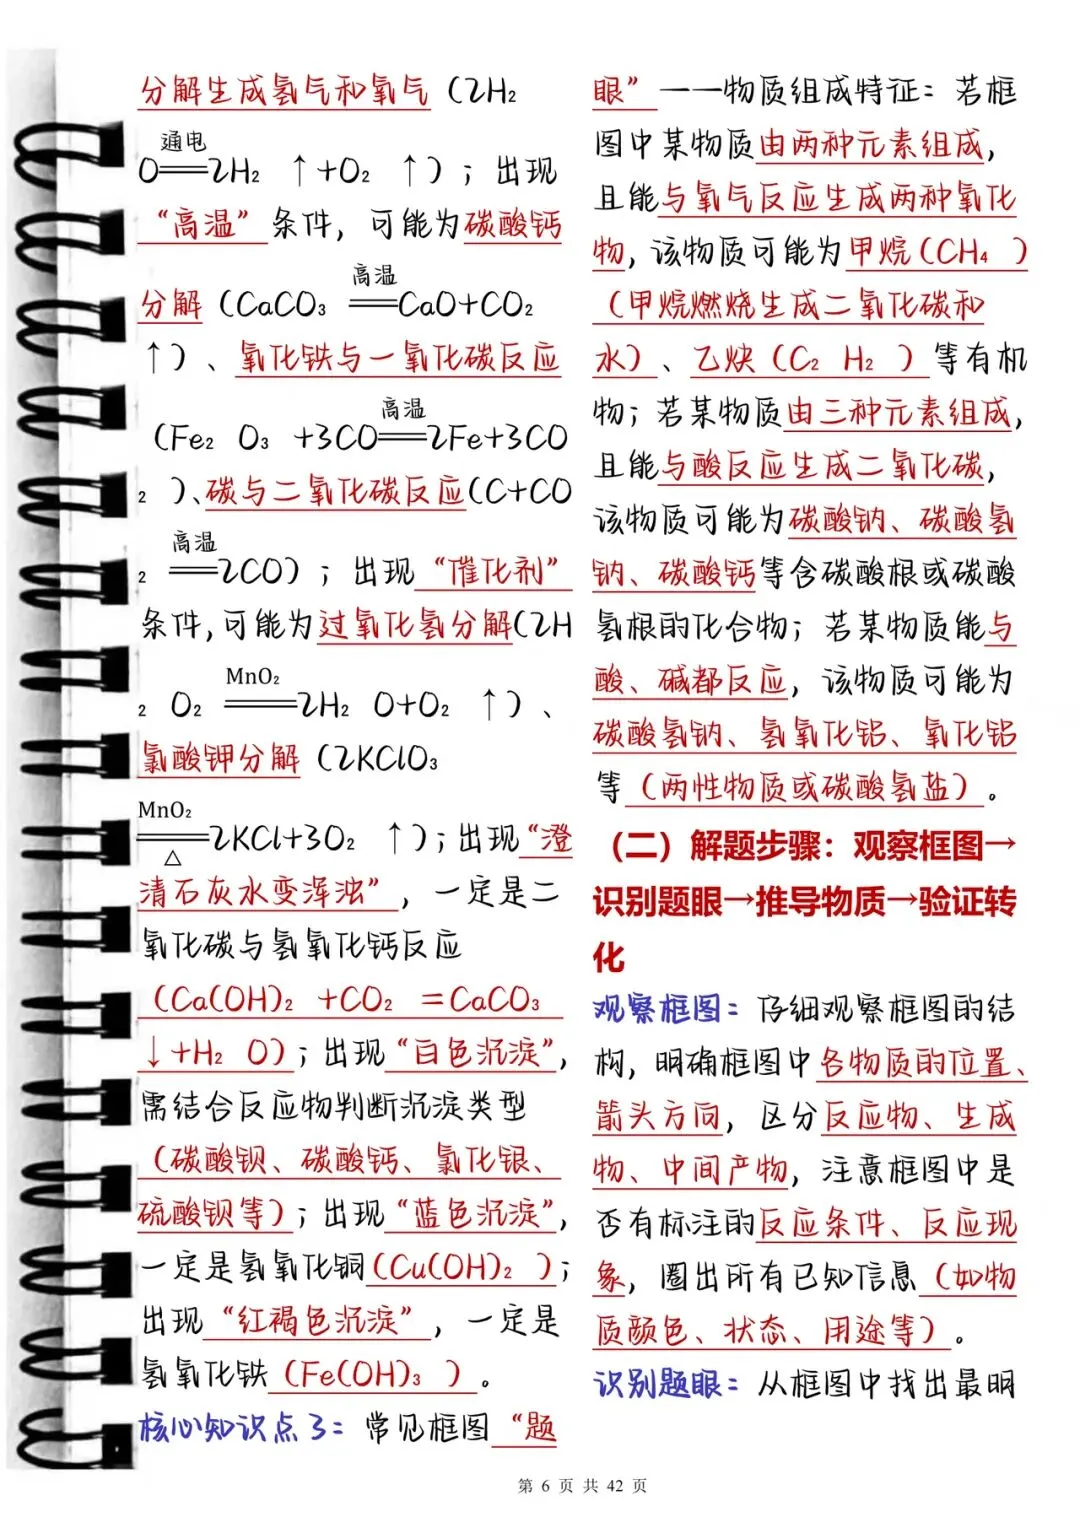 分解生成氢气和氧气（2H₂
通电
O══2H₂ ↑+O₂ ↑）；出现
“高温”条件，可能为碳酸钙
高温
分解（CaCO₃ ══CaO+CO₂
↑）、氧化铁与一氧化碳反应
高温
（Fe₂ O₃ +3CO══2Fe+3CO
₂ ）、碳与二氧化碳反应（C+CO
高温
₂ ══2CO）；出现“催化剂”
条件，可能为过氧化氢分解（2H
MnO₂
₂ O₂ ══2H₂ O+O₂ ↑）、
氯酸钾分解（2KClO₃
MnO₂
══2KCl+3O₂ ↑）；出现“澄
△
清石灰水变浑浊”，一定是二
氧化碳与氢氧化钙反应
（Ca(OH)₂ +CO₂ =CaCO₃
↓+H₂ O）；出现“白色沉淀”，
需结合反应物判断沉淀类型
（碳酸钡、碳酸钙、氯化银、
硫酸钡等）；出现“蓝色沉淀”，
一定是氢氧化铜（Cu(OH)₂ ）；
出现“红褐色沉淀”，一定是
氢氧化铁（Fe(OH)₃ ）。
核心知识点3：常见框图“题
眼”——物质组成特征：若框
图中某物质由两种元素组成，
且能与氧气反应生成两种氧化
物，该物质可能为甲烷（CH₄ ）
（甲烷燃烧生成二氧化碳和
水）、乙炔（C₂ H₂ ）等有机
物；若某物质由三种元素组成，
且能与酸反应生成二氧化碳，
该物质可能为碳酸钠、碳酸氢
钠、碳酸钙等含碳酸根或碳酸
氢根的化合物；若某物质能与
酸、碱都反应，该物质可能为
碳酸氢钠、氢氧化铝、氧化铝
等（两性物质或碳酸氢盐）。
（二）解题步骤：观察框图→
识别题眼→推导物质→验证转
化
观察框图：仔细观察框图的结
构，明确框图中各物质的位置、
箭头方向，区分反应物、生成
物、中间产物，注意框图中是
否有标注的反应条件、反应现
象，圈出所有已知信息（如物
质颜色、状态、用途等）。
识别题眼：从框图中找出最明
第 6 页 共 42 页